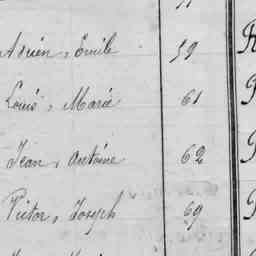 Adrien, Emile 59
Louis, Marie 61
Jean, Antoine 62
Victor, Joseph 69